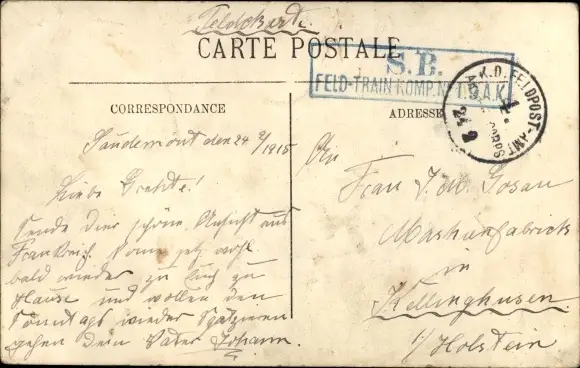 Feldkarte.
CARTE POSTALE
S.B.
FELD-TRAIN KOMP. N. A.K.
K.D. FELDPOST-AMT
CORPS
24 9
CORRESPONDANCE
ADRESSE
Saudemont den 24 9/1915
Liebe
Sende Dir schöne Ansicht aus
Frankreich. Komme jetz wohl
bald wieder zu Euch zu
Hause und wollen den
Sonntags wieder Spatzieren
gehen Dein Vater Johann.
An
Frau J. W. Gosau
Maskienfabrick
in
Kellinghusen
i/Holstein